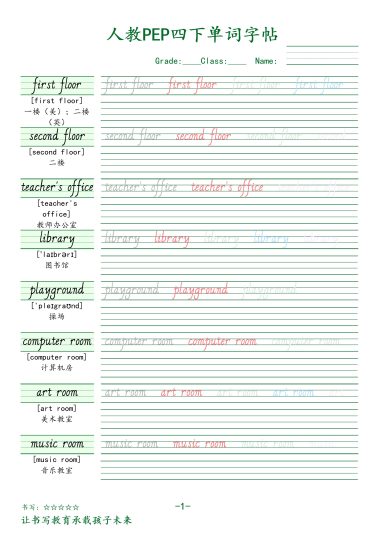 人教PEP四下单词字帖
Grade:____Class:____ Name:
first floor first floor first floor first floor first floor
[first floor]
一楼（美）；二楼
（英）
second floor second floor second floor second floor
[second floor]
二楼
teacher's office teacher's office teacher's office teacher's office
[teacher's
office]
教师办公室
library library library library library
[ˈlaɪbrərɪ]
图书馆
playground playground playground playground
[ˈpleɪgraʊnd]
操场
computer room computer room computer room computer room
[computer room]
计算机房
art room art room art room art room art room
[art room]
美术教室
music room music room music room music room music room
[music room]
音乐教室
书写：☆☆☆☆☆
-1-
让书写教育承载孩子未来